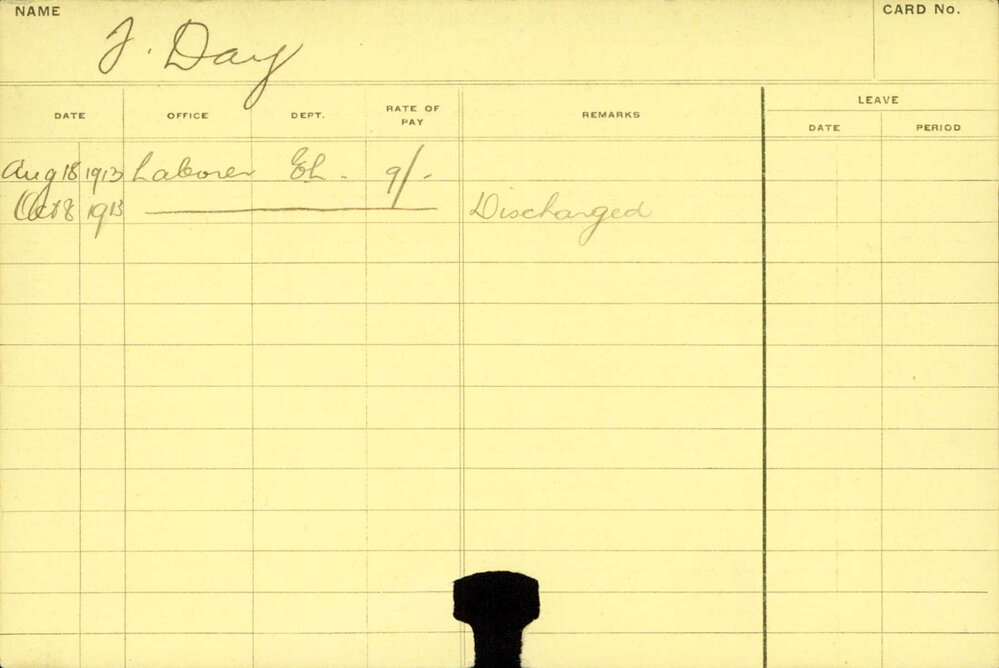 NAME
CARD No.
J. Day
DATE OFFICE DEPT. RATE OF PAY REMARKS LEAVE
DATE PERIOD
Aug 18 1913 Laborer 9/-
Oct 8 1913 Discharged